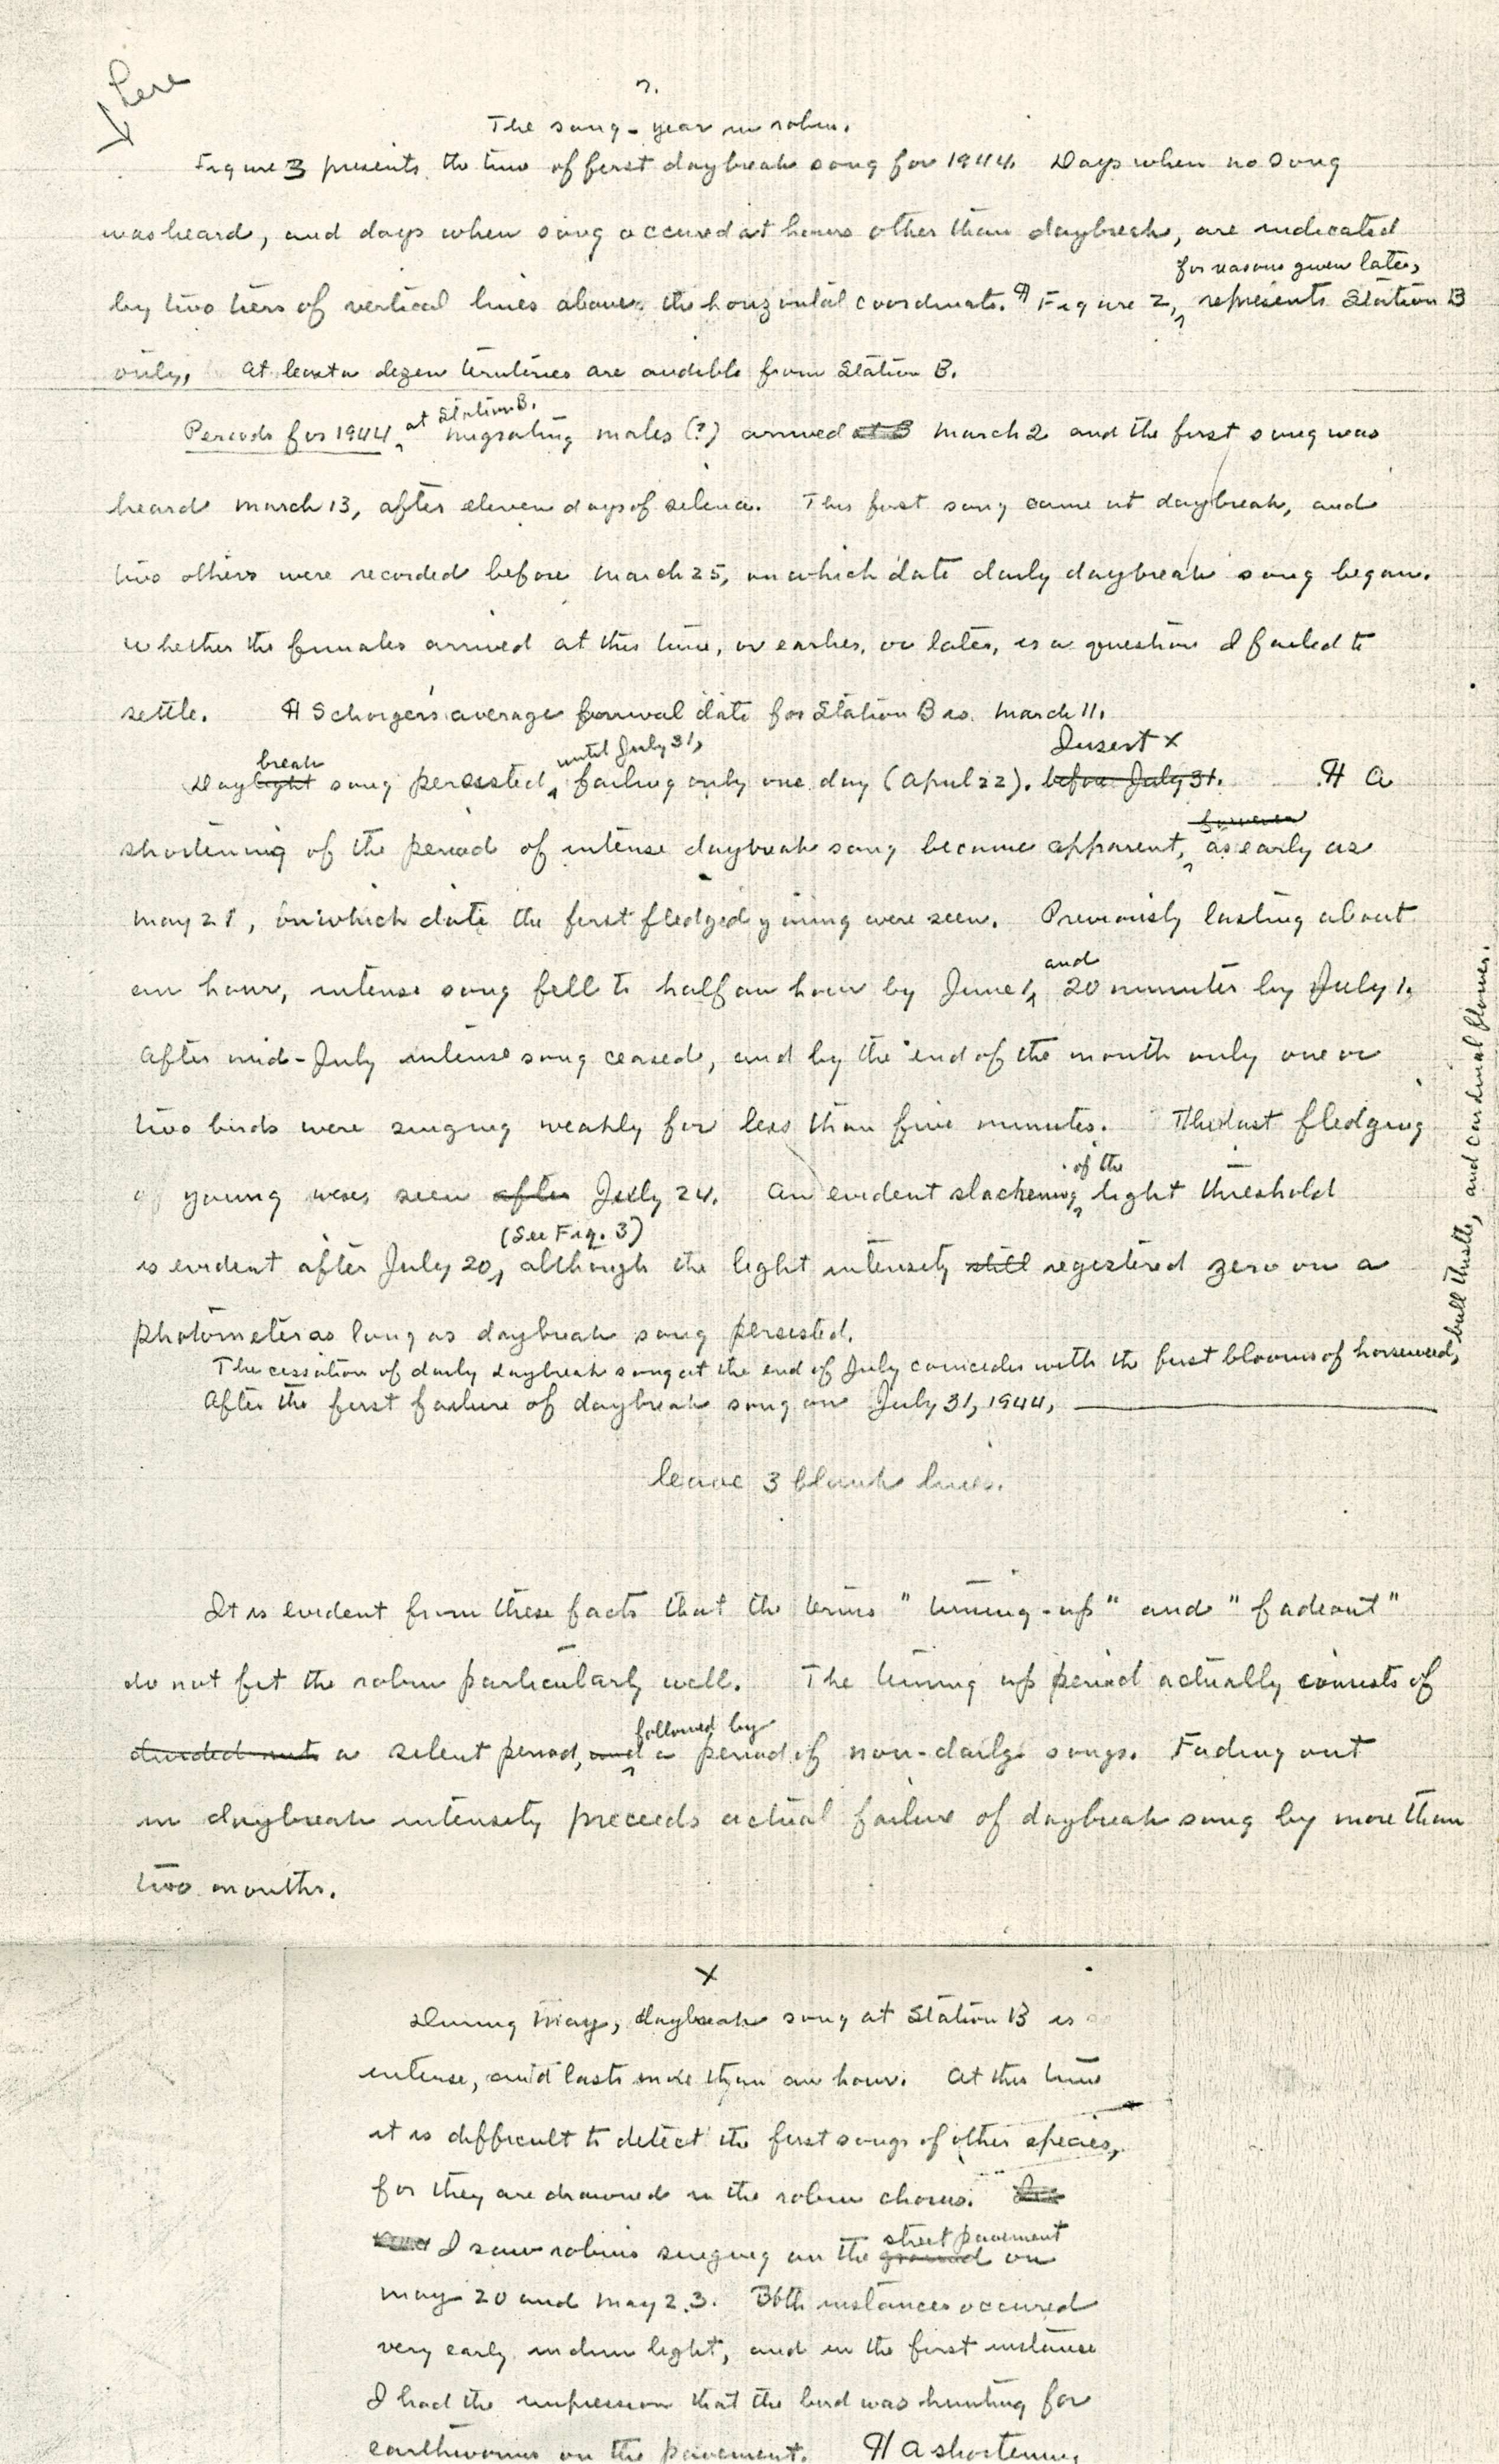 Here
7.
The song-year in robin.
Figure 3 presents the time of first daybreak song for 1944. Days when no song
was heard, and days when song occured at hours other than daybreak, are indicated
for reasons given later,
by two tiers of vertical lines above the horizontal coordinate. ¶ Figure 2, represents Station B
only. At least a dozen territories are audible from Station B.
at Station B.
Periods for 1944. Migrating males (?) arrived at B March 2 and the first song was
heard March 13, after eleven days of silence. This first song came at daybreak, and
two others were recorded before March 25, on which date daily daybreak song began.
Whether the females arrived at this time, or earlier, or later, is a question I failed to
settle. ¶ Schorger's average arrival date for Station B is March 11.
break until July 31, Insert x
Daylight song persisted, failing only one day (April 22). before July 31. ¶ A
however
shortening of the period of intense daybreak song became apparent, as early as
May 21, on which date the first fledged young were seen. Previously lasting about
and
an hour, intense song fell to half an hour by June 1, 20 minutes by July 1.
After mid-July intense song ceased, and by the end of the month only one or
two birds were singing weakly for less than five minutes. The last fledging
of the
of young were seen after July 24. An evident slackening light threshold
(See Fig. 3)
is evident after July 20, although the light intensity still registered zero on a
photometer as long as daybreak song persisted.
The cessation of daily daybreak song at the end of July coincides with the first blooms of horseweed,
bull thistle, and cardinal flower.
After the first failure of daybreak song on July 31, 1944,
leave 3 blank lines.
It is evident from these facts that the terms "tuning-up" and "fadeout"
do not fit the robin particularly well. The tuning up period actually consists of
followed by
divided into a silent period, and a period of non-daily songs. Fading out
in daybreak intensity preceeds actual failure of daybreak song by more than
two months.
x
During May, daybreak song at Station B is
intense, and lasts more than an hour. At this time
it is difficult to detect the first songs of other species,
for they are drowned in the robin chorus.
street pavement
I saw robins singing on the ground on
May 20 and May 23. Both instances occured
very early, in dim light, and in the first instance
I had the impression that the bird was hunting for
earthworms on the pavement. ¶ A shortening